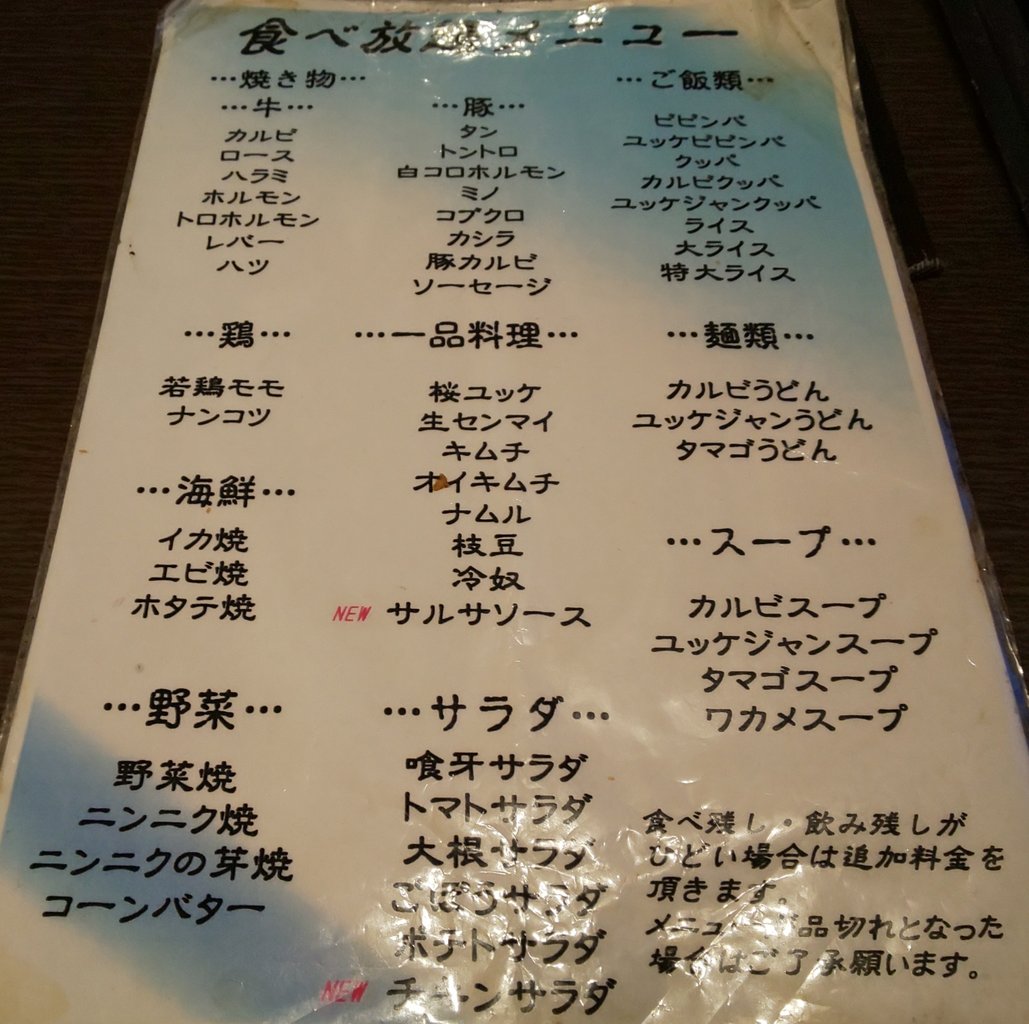 食べ放題メニュー
…焼き物…
…牛…
カルビ
ロース
ハラミ
ホルモン
トロホルモン
レバー
ハツ
…豚…
タン
トントロ
白コロホルモン
ミノ
コブクロ
カシラ
豚カルビ
ソーセージ
…ご飯類…
ビビンバ
ユッケビビンバ
クッパ
カルビクッパ
ユッケジャンクッパ
ライス
大ライス
特大ライス
…鶏…
若鶏モモ
ナンコツ
…一品料理…
桜ユッケ
生センマイ
キムチ
オイキムチ
ナムル
枝豆
冷奴
NEW サルサソース
…麺類…
カルビうどん
ユッケジャンうどん
タマゴうどん
…海鮮…
イカ焼
エビ焼
ホタテ焼
…スープ…
カルビスープ
ユッケジャンスープ
タマゴスープ
ワカメスープ
…野菜…
野菜焼
ニンニク焼
ニンニクの芽焼
コーンバター
…サラダ…
喰牙サラダ
トマトサラダ
大根サラダ
ごぼうサラダ
ポテトサラダ
NEW サラダ
食べ残し・飲み残しが
ひどい場合は追加料金を
頂きます。
メニューが品切れとなった
場合はご了承願います。